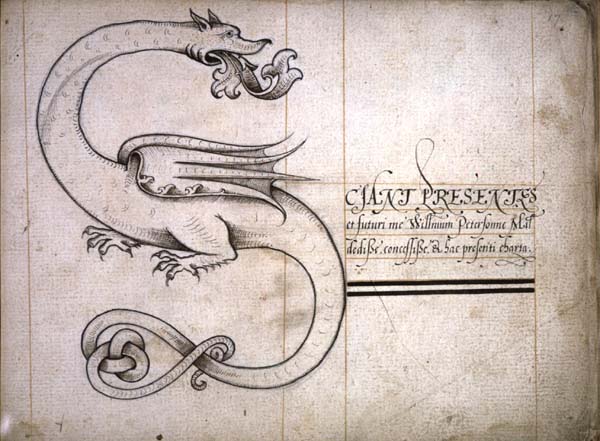 SCIANT PRESENTES
et futuri me Willmum Petersonne Mas̃
dedisse, concessisse, & hac presenti charta.
17